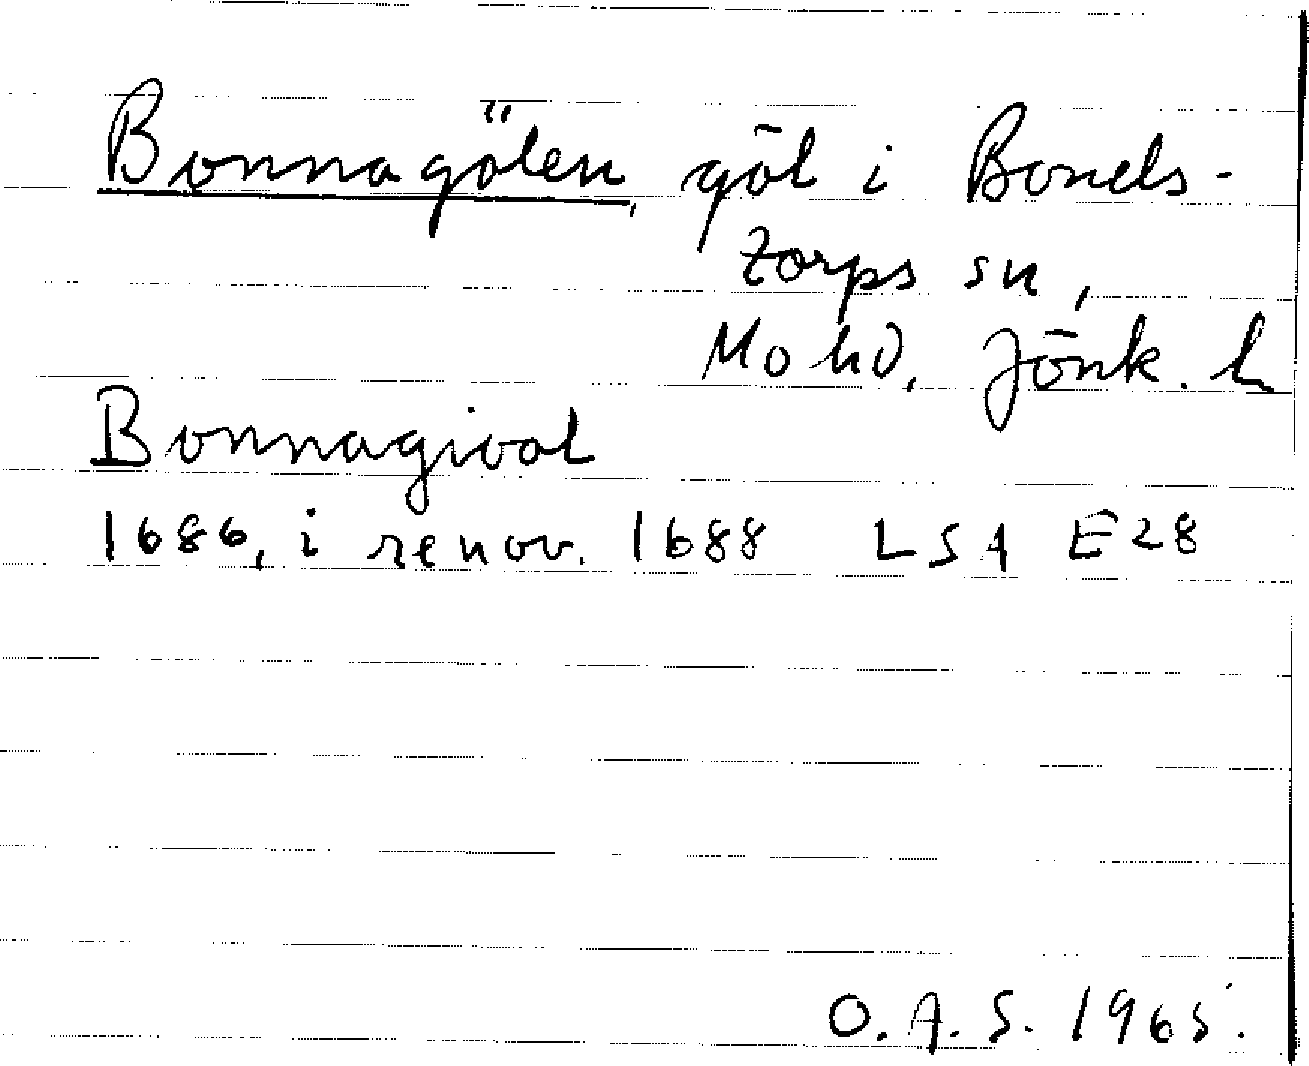 Bonnagölen, göl i Bonds-
torps sn,
Mo hd, Jönk. l
Bonnagiöol
1686, i renov. 1688 LSA E28
O. A. S. 1965.